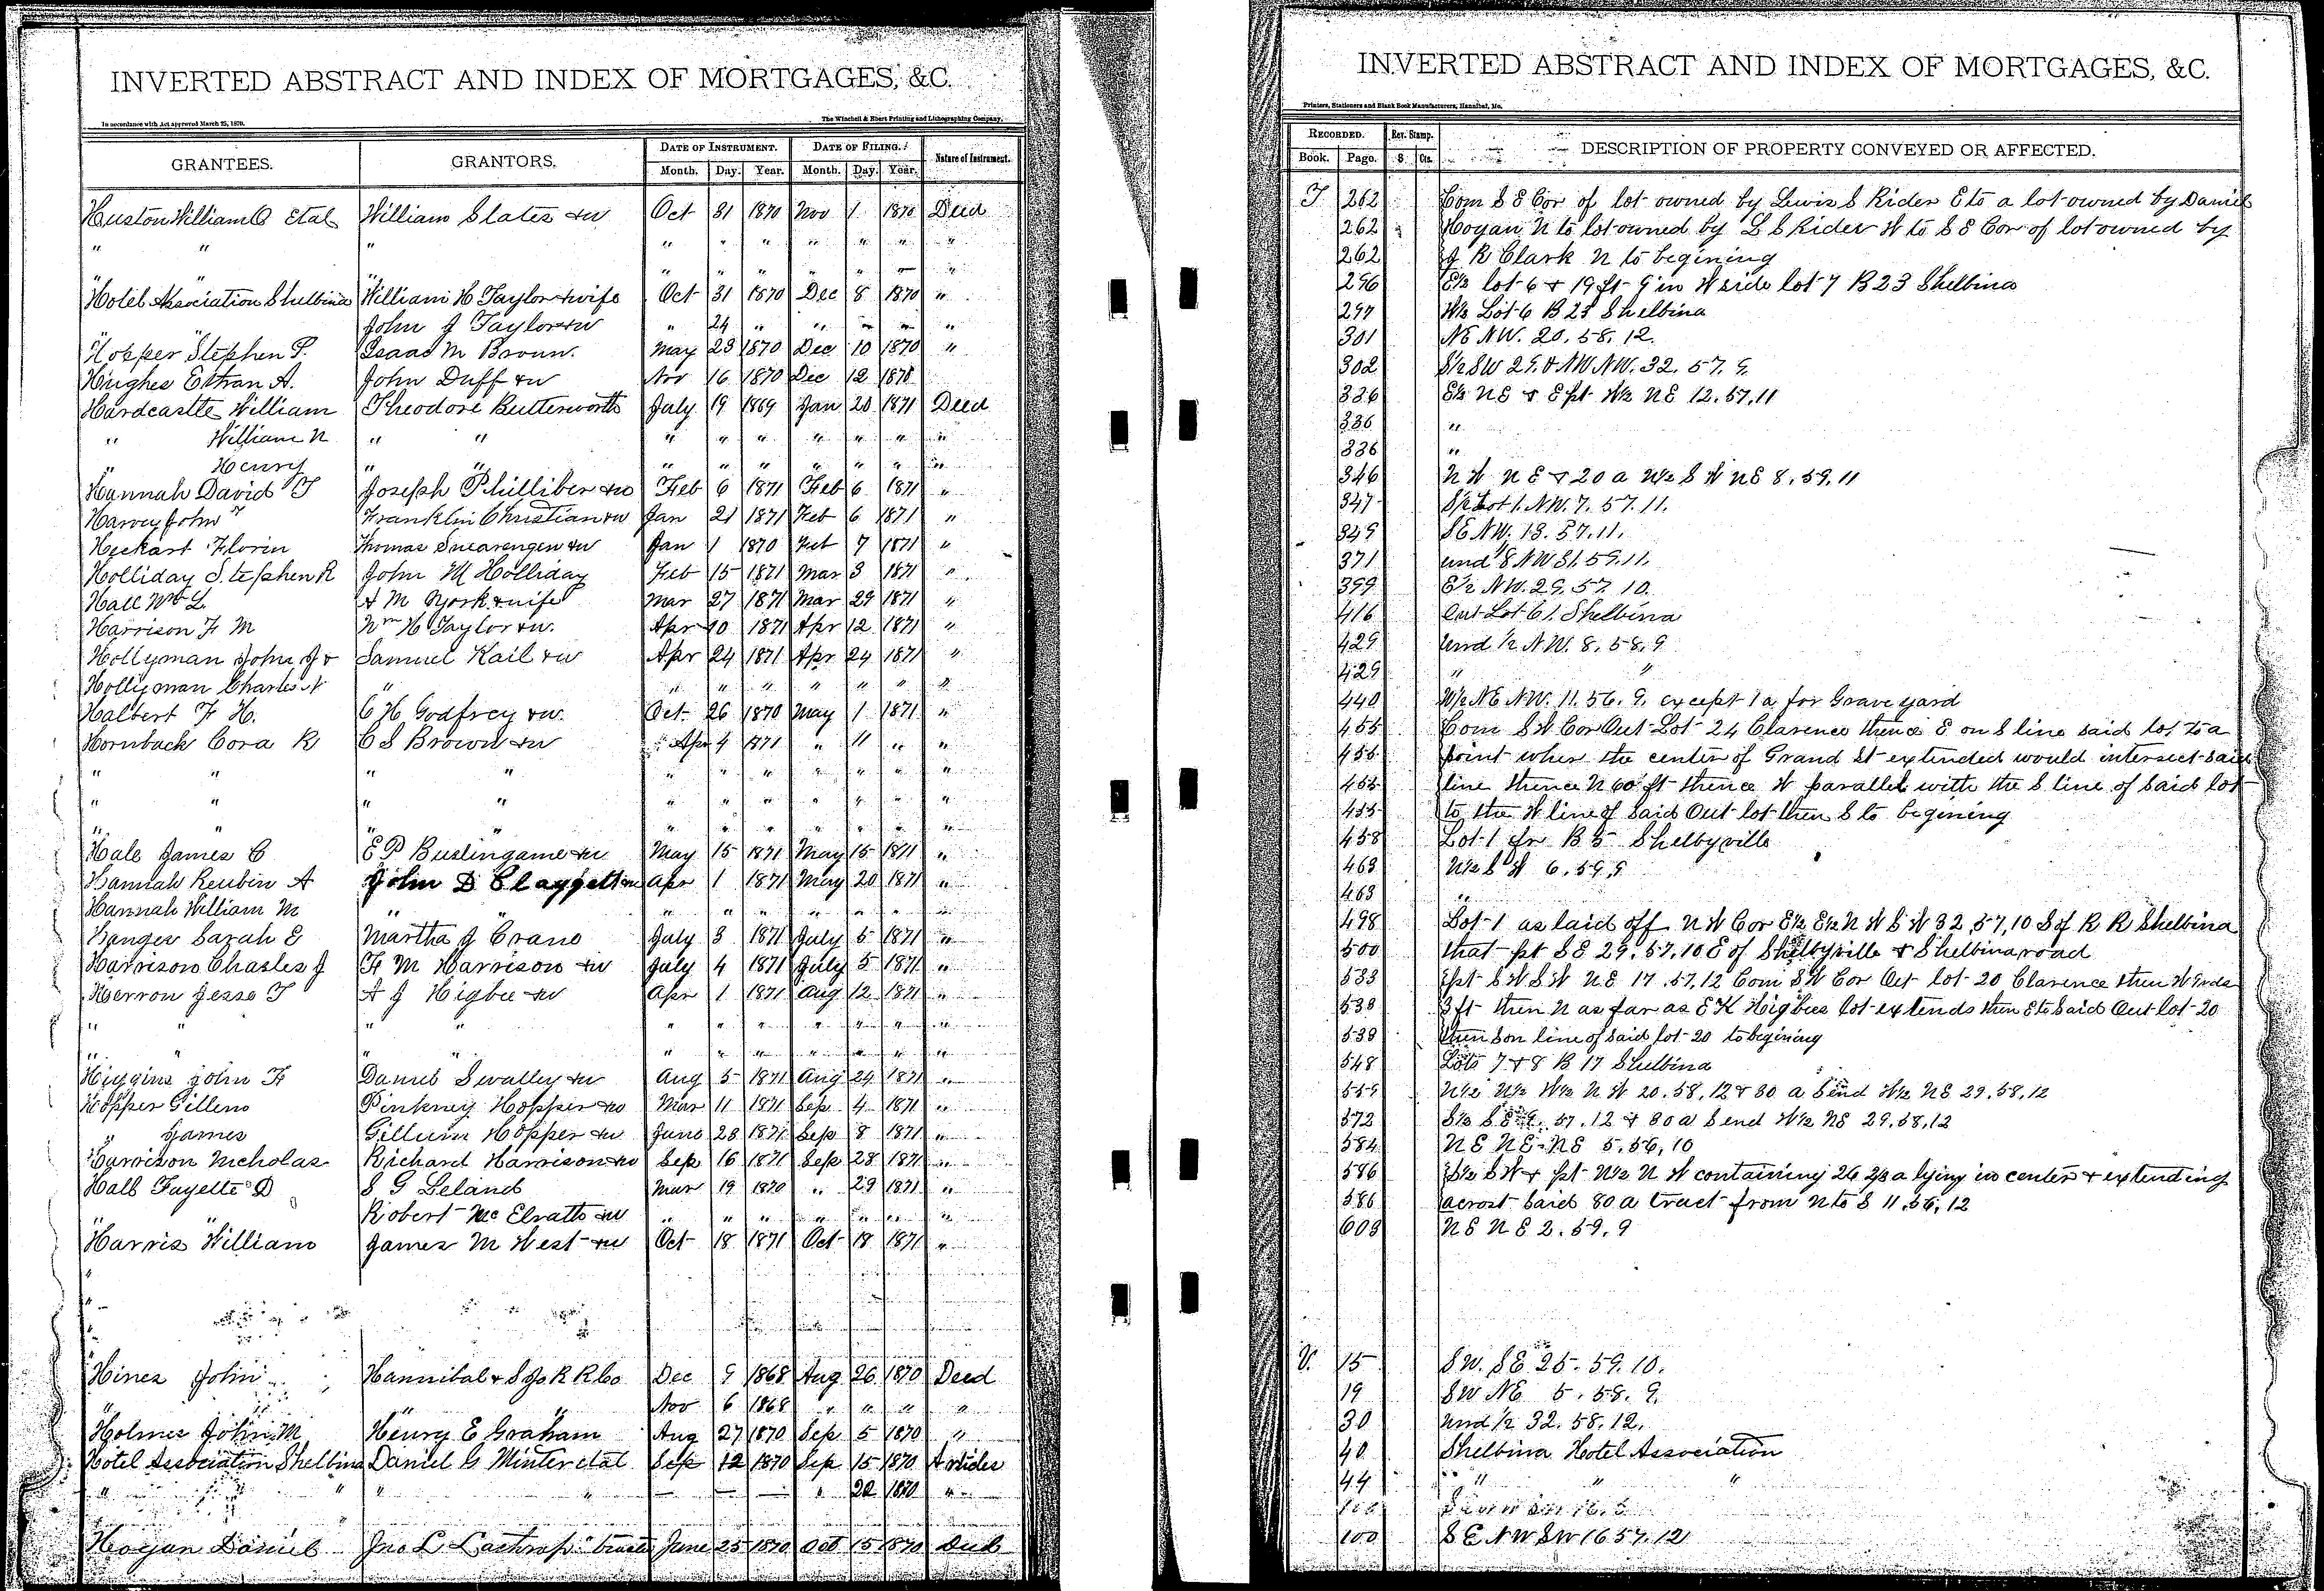 INVERTED ABSTRACT AND INDEX OF MORTGAGES, &C.
In accordance with Act approved March 25, 1870.
The Winchell & Ebert Printing and Lithographing Company,
GRANTEES. GRANTORS. DATE OF INSTRUMENT. DATE OF FILING. Nature of Instrument.
Month. Day. Year. Month. Day. Year.
Huston William O Etal William Slater & w Oct 31 1870 Nov 1 1870 Deed
" " " " " " " " " "
" " " " " " " "
Hotel Association Shelbina William H Taylor & wife Oct 31 1870 Dec 8 1870 "
John J Taylor & w " 24 " " " " "
Hopper Stephen P. Isaac M Brown. May 23 1870 Dec 10 1870 "
Hughes Ethan A. John Duff & w Nov 16 1870 Dec 12 1870
Hardcastle William Theodore Butterworth July 19 1869 Jan 20 1871 Deed
" William N " " " " " " " " "
" Henry " " " " " " " " "
Hannah David T Joseph Philliber & w Feb 6 1871 Feb 6 1871 "
Harvey John Franklin Christian & w Jan 21 1871 Feb 6 1871 "
Heckart Florin Thomas Swearengen & w Jan 1 1870 Feb 7 1871 "
Holliday Stephen R John M Holliday Feb 15 1871 Mar 3 1871 "
Hall Wm L. A M York & wife Mar 27 1871 Mar 29 1871 "
Harrison F M Wm H Taylor & w. Apr 10 1871 Apr 12 1871 "
Hollyman John J & Samuel Kail & w Apr 24 1871 Apr 24 1871 "
Hollyman Charles N " " " " " " " "
Halbert F H. C H Godfrey & w. Oct 26 1870 May 1 1871 "
Hornback Cora R C S Brown & w Apr 4 1871 " 11 " "
" " " " " " " " " " "
" " " " " " " " " " "
" " " " " " " " " "
Hale James C E P Burlingame & w May 15 1871 May 15 1871 "
Hannah Reubin A John D Claggett & w Apr 1 1871 May 20 1871 "
Hannah William M " " " " " " " " "
Hanger Sarah E Martha J Crane July 3 1871 July 5 1871 "
Harrison Charles J F M Harrison & w July 4 1871 July 5 1871 "
Herron Jesse T A J Higbee & w Apr 1 1871 Aug 12 1871 "
" " " " " " " " " " "
" " " " " " " " " "
Higgins John F Daniel Swalley & w Aug 5 1871 Aug 24 1871 "
Hopper Gillem Pinkney Hopper & w Mar 11 1871 Sep 4 1871 "
" James Gillum Hopper & w June 28 1871 Sep 8 1871 "
Harrison Nicholas Richard Harrison & w Sep 16 1871 Sep 28 1871 "
Hall Fayette D S G Leland Mar 19 1870 " 29 1871 "
Robert McElratts & w " " " " " " "
Harris William James M West & w Oct 18 1871 Oct 18 1871 "
Hines John Hannibal & S Jo R R Co Dec 9 1868 Aug 26 1870 Deed
" " Nov 6 1868 " " " "
Holmes John M Henry E Graham Aug 27 1870 Sep 5 1870 "
Hotel Association Shelbina Daniel G Minter etal Sep 12 1870 Sep 15 1870 Articles
" " " " " 22 1870 "
Hogan Daniel Jno L Lathrop trustee June 25 1870 Oct 15 1870 Deed
INVERTED ABSTRACT AND INDEX OF MORTGAGES, &C.
Printers, Stationers and Blank Book Manufacturers, Hannibal, Mo.
RECORDED. Rev. Stamp. DESCRIPTION OF PROPERTY CONVEYED OR AFFECTED.
Book. Page. $ Cts.
T 262 Com S E Cor of lot owned by Lewis S Rider E to a lot owned by Daniel
262 Hogan N to lot owned by L S Rider W to S E Cor of lot owned by
262 J R Clark N to begining
296 E½ lot 6 & 19 ft 9 in W side lot 7 B 23 Shelbina
297 W½ Lot 6 B 23 Shelbina
301 NE NW. 20. 58. 12.
302 S½ SW 29. & NW NW. 32. 57. 9.
336 E½ NE & E pt W½ NE 12. 57. 11
336 "
336 "
346 N W N E & 20 a W½ S W NE 8. 59. 11
347 S½ Lot 1. NW. 7. 57. 11.
349 SE NW. 13. 57. 11.
371 und ⅛ NW 31. 59. 11.
399 E½ NW. 29. 57. 10.
416 Out Lot 61. Shelbina
429 Und ½ N.W. 8. 58. 9
429 " "
440 W½ NE NW. 11. 56. 9. except 1 a for Grave yard
455 Com S W Cor Out Lot 24 Clarence thence E on S line said lot to a
455 point when the center of Grand St extended would intersect said
455 line thence N 60 ft thence W parallel with the S line of said lot
455 to the W line of said Out lot then S to begining
458 Lot 1 fr B 5 Shelbyville
463 N½ S W 6. 59. 9
463 "
498 Lot 1 as laid off N W Cor E½ E½ N W S W 32, 57, 10 S of R R Shelbina
500 that pt SE 29. 57. 10 E of Shelbyville & Shelbina road
538 E pt S W S W N E 17. 57. 12 Com S W Cor Out lot 20 Clarence then W 9 rds
538 3 ft then N as far as E K Higbees lot extends then E to said Out lot 20
538 then S on line of said lot 20 to begining
548 Lots 7 & 8 B 17 Shelbina
N½ N½ W½ N W 20. 58. 12 & 80 a S end W½ NE 29. 58. 12
572 57. 12 & 80 a S end W½ NE 29. 58. 12
584 N E N E NE 5. 56. 10
586 S½ S W & pt N½ N W containing 26 ⅔ a lying in center & extending
586 acrost said 80 a tract from N to S 11. 56. 12
608 N E N E 2. 59. 9
U. 15 S W. SE 25. 59. 10.
19 SW NE 5. 58. 9.
30 Und ½ 32. 58. 12.
40 Shelbina Hotel Association
44 " " "
100 S E NW SW 16 57. 12